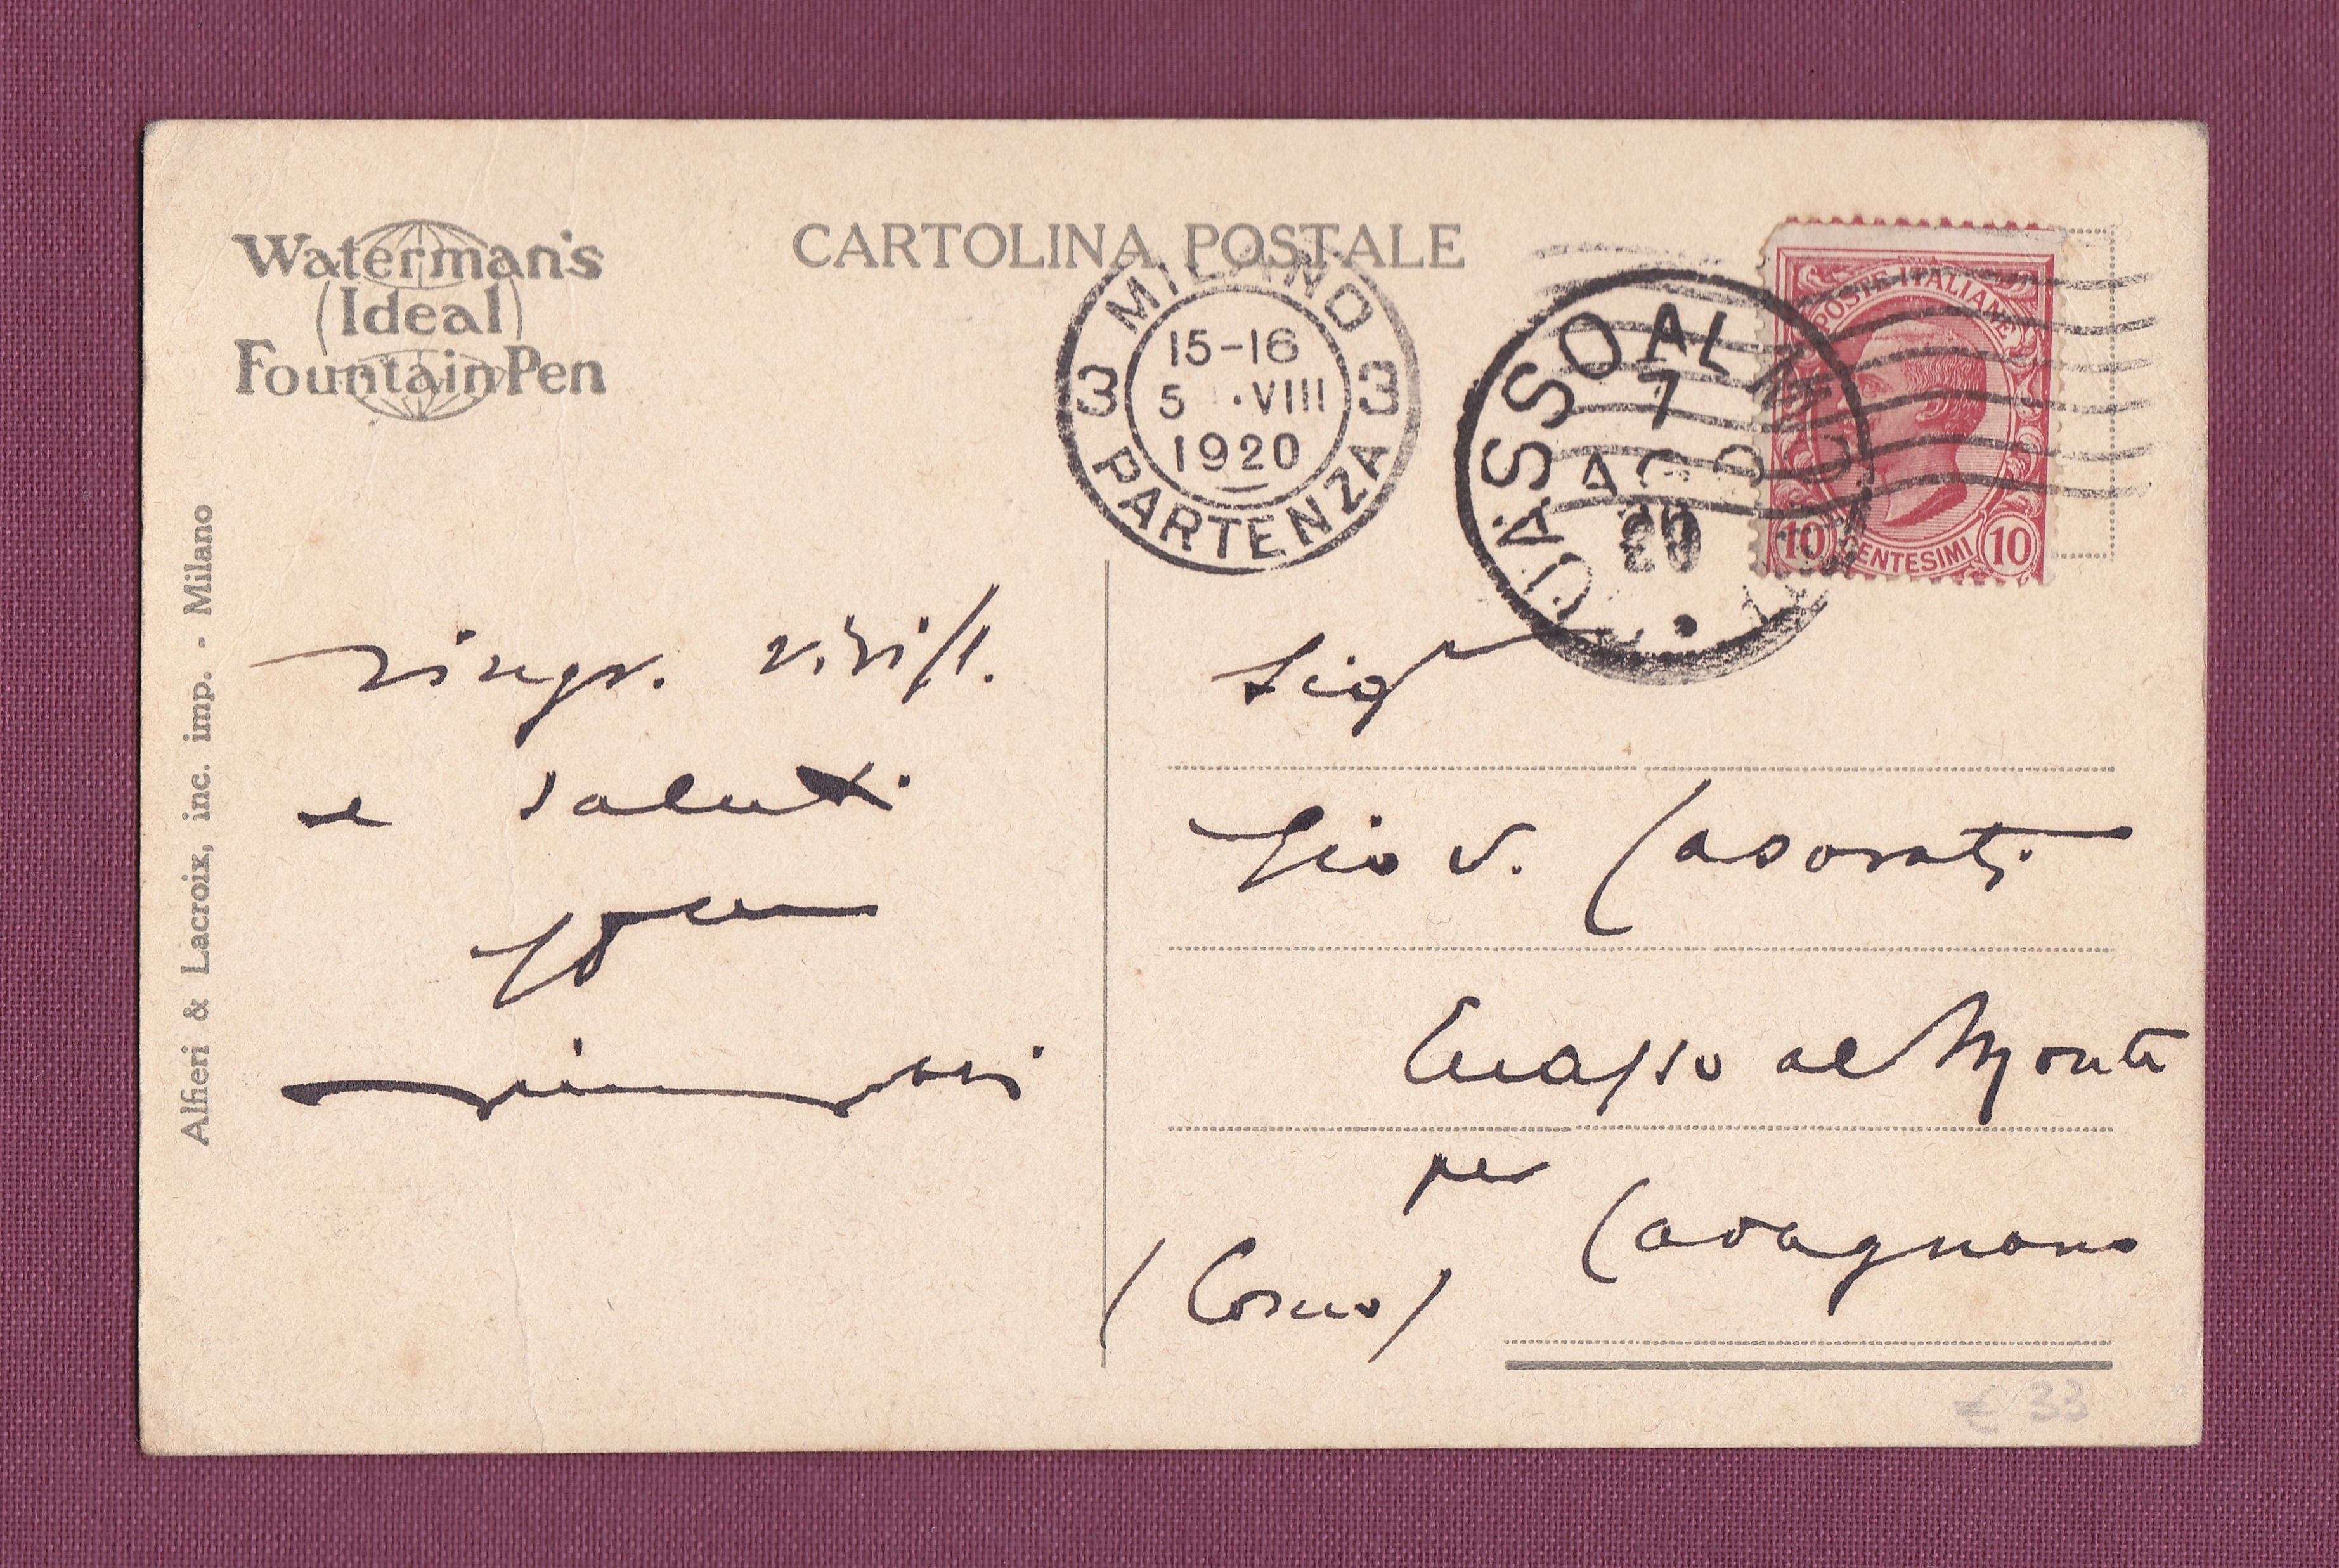 Waterman's
(Ideal)
Fountain Pen
CARTOLINA POSTALE
MILANO
3 15-16 3
5 ·VIII
1920
PARTENZA
CUASSO AL M
7
AGO
20
POSTE ITALIANE
10 CENTESIMI 10
Alfieri & Lacroix, inc. imp. - Milano
ringr.
e saluti
Sigr
Giov. Casorati
Cuasso al Monte
per
Cavagnano
(Como)
€ 33